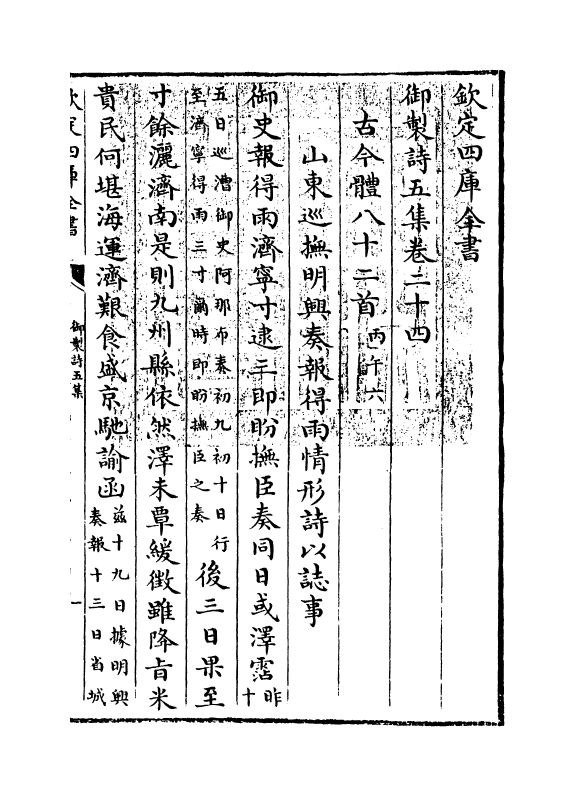 欽定四庫全書
御製詩五集卷二十四
古今體八十二首丙午六
山東巡撫明興奏報得雨情形詩以誌事
御史報得雨濟寧寸逮三即盼撫臣奏同日或澤霑昨十
五日巡漕御史阿那布奏初九初十日行
至濟寧得雨三寸爾時即盼撫臣之奏
後三日果至
寸餘灑濟南是則九州縣依然澤未覃緩徵雖降旨米
貴民何堪海運濟艱食盛京馳諭函
茲十九日據明興
奏報十三日省城
欽定四庫全書
御製詩五集
一